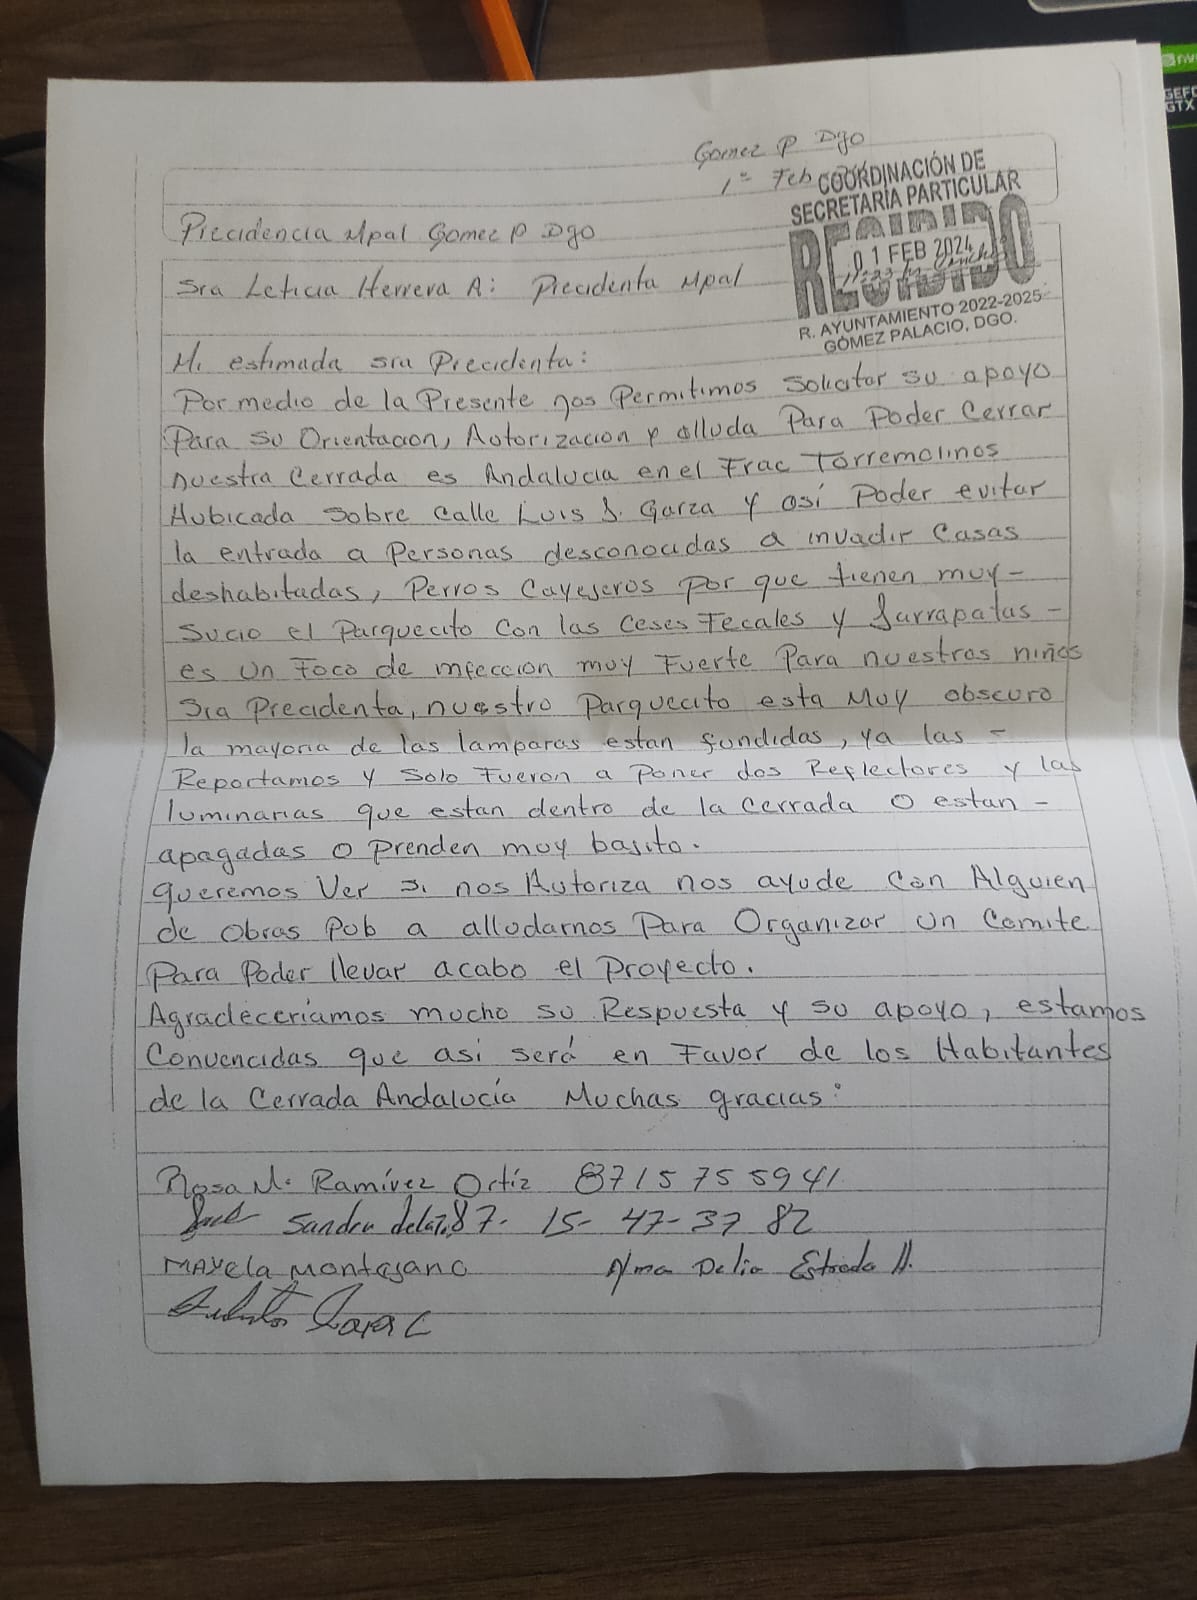 Gomez P Dgo
1º Feb
COORDINACIÓN DE
SECRETARÍA PARTICULAR
RECIBIDO
01 FEB 2024
R. AYUNTAMIENTO 2022-2025
GÓMEZ PALACIO, DGO.
Precidencia Mpal Gomez P Dgo
Sra Leticia Herrera A: Precidenta Mpal
Mi estimada sra Precidenta:
Por medio de la Presente nos Permitimos Solicitar su apoyo
Para su Orientacion, Autorizacion y alluda Para Poder Cerrar
nuestra Cerrada es Andalucia en el Frac Torremolinos
Hubicada Sobre Calle Luis S. Garza y así Poder evitar
la entrada a Personas desconocidas a invadir Casas
deshabitadas, Perros Cayejeros por que tienen muy -
Sucio el Parquecito Con las Ceses Fecales y Garrapatas -
es un Foco de infeccion muy Fuerte Para nuestros niños
Sra Precidenta, nuestro Parquecito esta Muy obscuro
la mayoria de las lamparas estan fundidas, ya las -
Reportamos y Solo Fueron a Poner dos Reflectores y las
luminarias que estan dentro de la Cerrada o estan -
apagadas o Prenden muy bajito.
queremos Ver si nos Autoriza nos ayude Con Alguien
de Obras Pub a alludarnos Para Organizar un Comite
Para Poder llevar acabo el Proyecto.
Agradeceríamos mucho su Respuesta y su apoyo, estamos
Convencidas que asi será en Favor de los Habitantes
de la Cerrada Andalucía Muchas gracias:
Rosa M. Ramírez Ortíz 8715755941
Sandra 87- 15- 47-37 82
MAYela Montejano Alma Delia Estrada H.